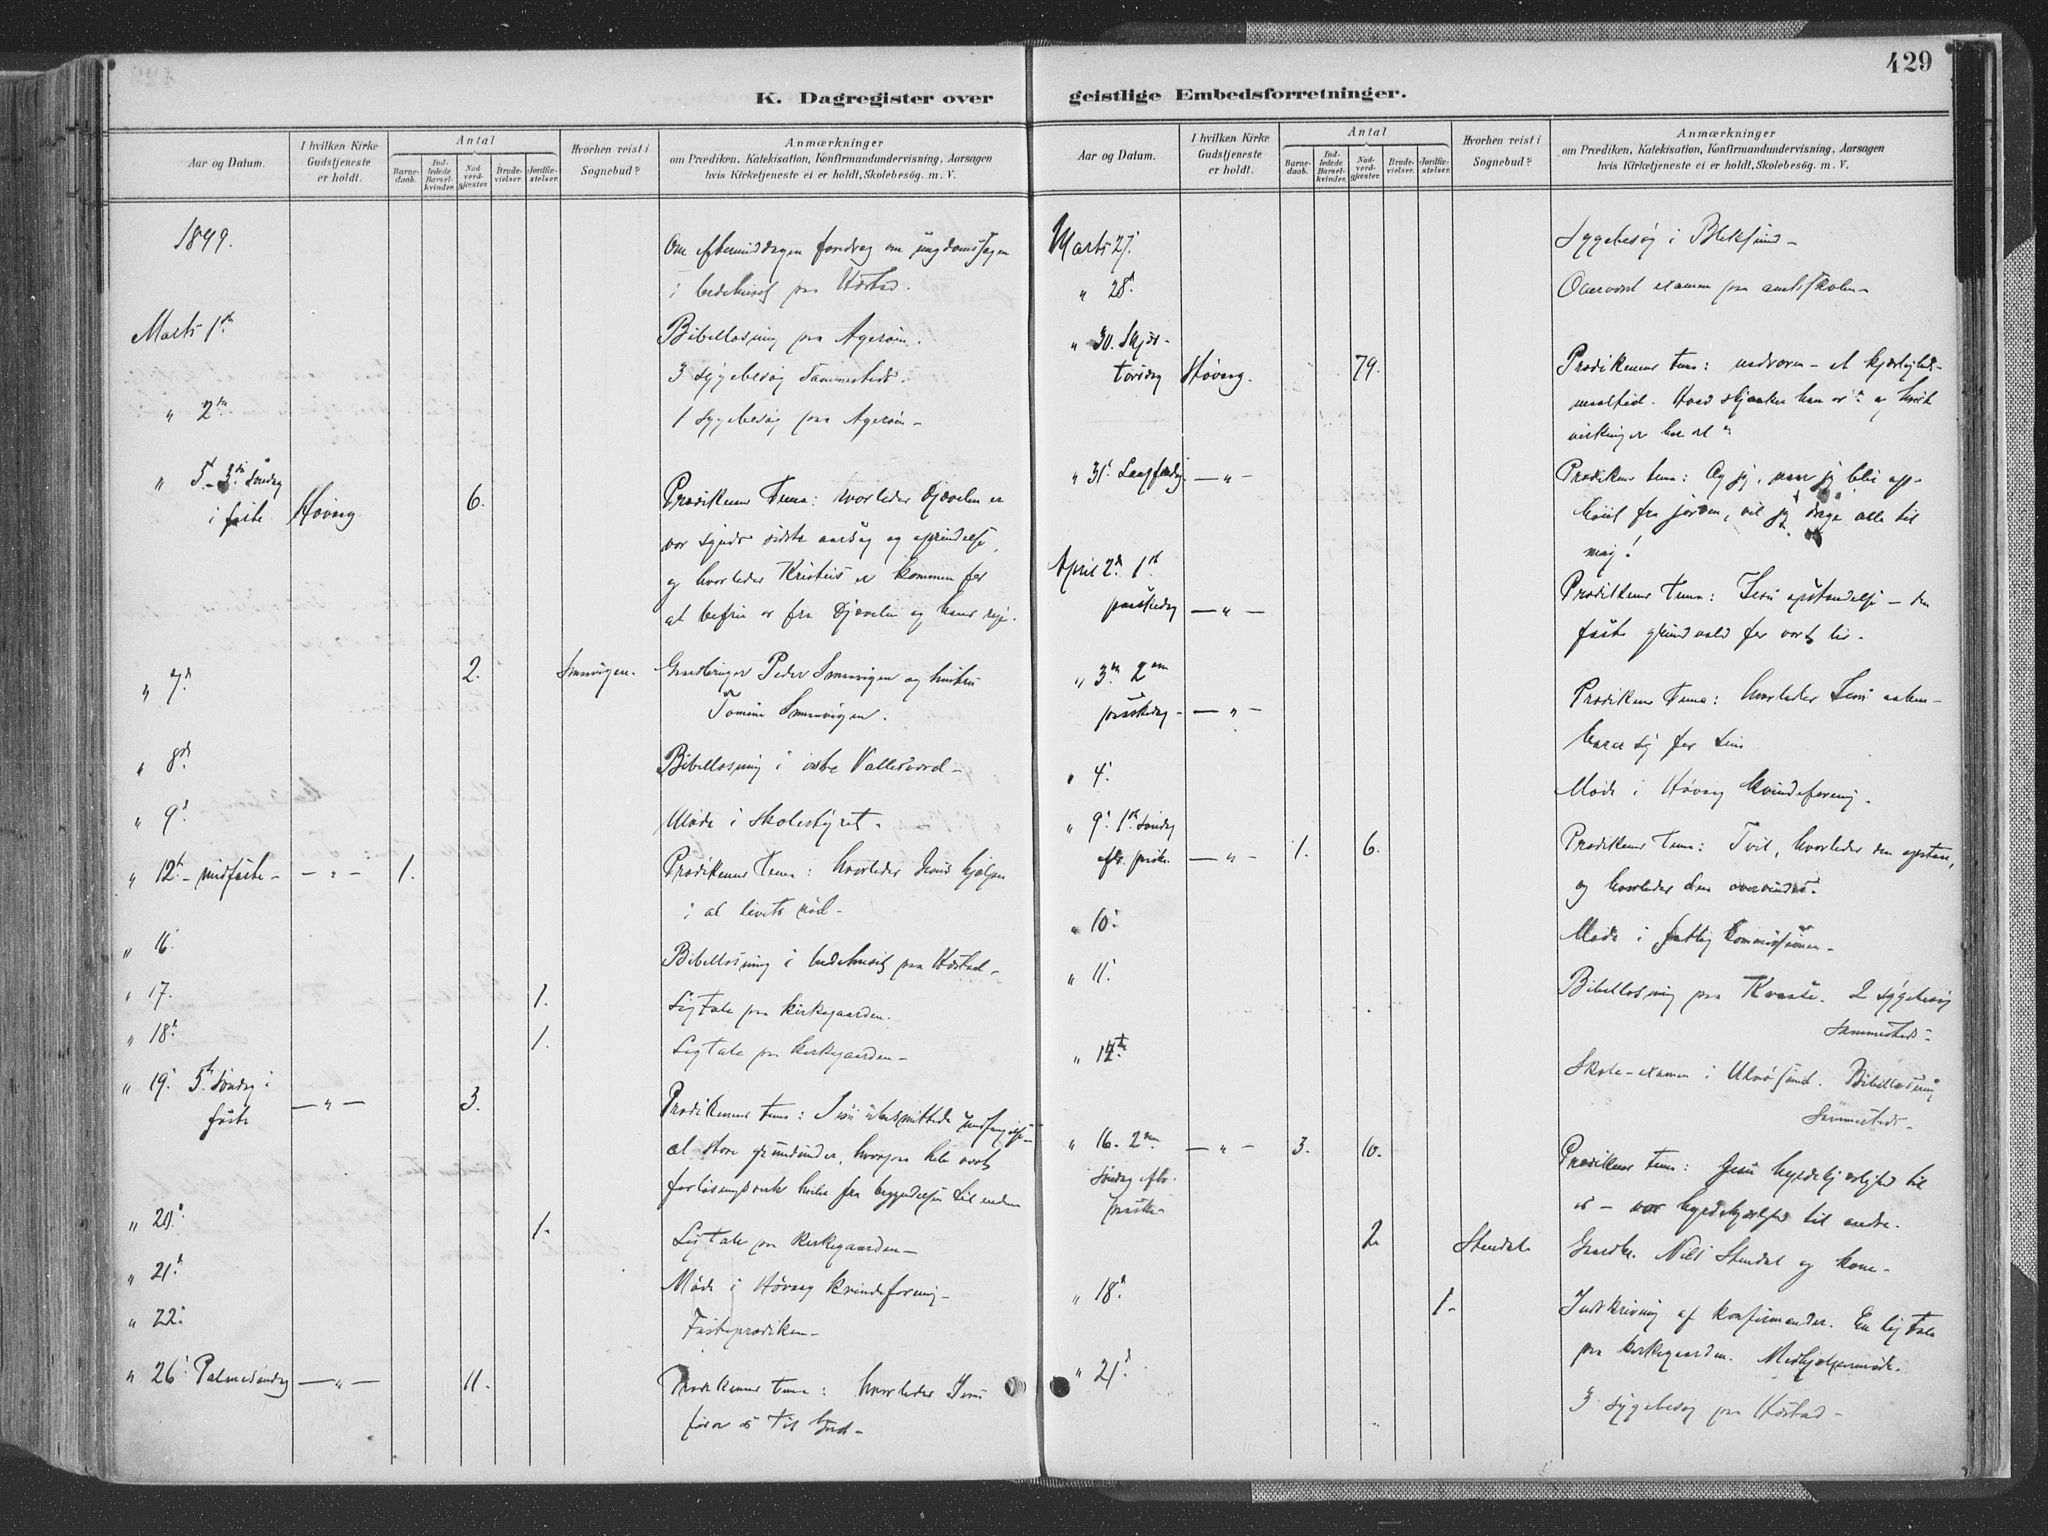 429
K. Dagregister over geistlige Embedsforretninger.
Aar og Datum.
I hvilken Kirke Gudstjeneste er holdt.
Antal
Barnedaab.
Indledede Barselkvinder.
Nadverdgjæster.
Brudevielser.
Jordfæstelser.
Hvorhen reist i Sognebud?
Anmærkninger
om Prædiken, Katekisation, Konfirmandundervisning, Aarsagen
hvis Kirketjeneste ei er holdt, Skolebesög. m. V.
1899.
Om eftermiddagen foredrag om ungdomssagen
i bedehuset paa
Marts 1ste Bibellæsning paa Agerøen.
3 sygebesøg sammesteds.
" 2den 1 sygebesøg paa Agerøen -
" 5. 3die Søndag
i faste Høvag 6. Prædikenens Tema: hvorledes Djævelen er
vor synds sidste aarsag og oprindelse,
og hvorledes Kristus er kommen for
at befrie os fra Djævelen og hans
" 7de 2. Gaardbruger Peder og hustru
" 8de Bibellæsning i østre Vallesværd -
" 9de Møde i Skolestyret.
" 12te - midfaste - - " - 1. Prædikenens Tema: hvorledes Jesus hjælper
i al livets nød -
" 16. Bibellæsning i bedehuset paa
" 17. 1. Ligtale paa kirkegaarden.
" 18de 1. Ligtale paa kirkegaarden -
" 19. 5te Søndag i
faste - " - 3. Prædikenens tema: Jesu ubesmittede undfangelse -
et store grundunder, hvorpaa hele vort
forløsningsverk hviler fra begyndelsen til enden
" 20. 1. Ligtale paa kirkegaarden -
" 21. Møde i Høvag kvindeforening -
" 22. Fasteprædiken -
" 26. Palmesøndag - " - 11. Prædikenens tema: hvorledes Jesus
fører os til Gud -
Aar og Datum.
I hvilken Kirke Gudstjeneste er holdt.
Antal
Barnedaab.
Indledede Barselkvinder.
Nadverdgjæster.
Brudevielser.
Jordfæstelser.
Hvorhen reist i Sognebud?
Anmærkninger
om Prædiken, Katekisation, Konfirmandundervisning, Aarsagen
hvis Kirketjeneste ei er holdt, Skolebesög. m. V.
Marts 27. Sygebesøg i Bleksund -
" 28de Overvært examen paa amtsskolen -
" 30. Skjær-
torsdag Høvag. 79. Prædikenens tema: nadveren - et kjærligheds-
maaltid. Hvad skjænker han os? og hvilke
virkninger har det?
" 31. Langfredag - " - Prædikenens tema: Og jeg, naar jeg blir op-
høiet fra jorden, vil jeg drage alle til
mig!
April 2den 1ste
paaskedag - " - Prædikenens Tema: Jesu opstandelse - den
faste grundvold for vort liv -
" 3die 2den
paaskedag - - " - Prædikenens Tema: hvorledes Jesus aaben-
barer sig for sine
" 4. Møde i Høvag kvindeforening.
" 9. 1ste Søndag
efter paaske. - " - 1. 6. Prædikenens Tema: Tvil, hvorledes den opstaar,
og hvorledes den overvindes.
" 10. Møde i fattigkommissionen -
" 11. Bibellæsning paa Kvaase. 2 sygebesøg
sammesteds -
" 12te Skole-examen i Ulvøsund. Bibellæsning
sammesteds -
" 16. 2den
Søndag efter
paaske - - " - 3. 10. Prædikenens tema: Jesu hyrdekjærlighed til
os - vor hyrdekjærlighed til andre.
2 Stendal Gaardbr. Nils Stendal og kone -
" 18de 1. Indskrivning af konfirmander. En ligtale
paa kirkegaarden. Medhjælpermøde.
" 21de 3 sygebesøg paa